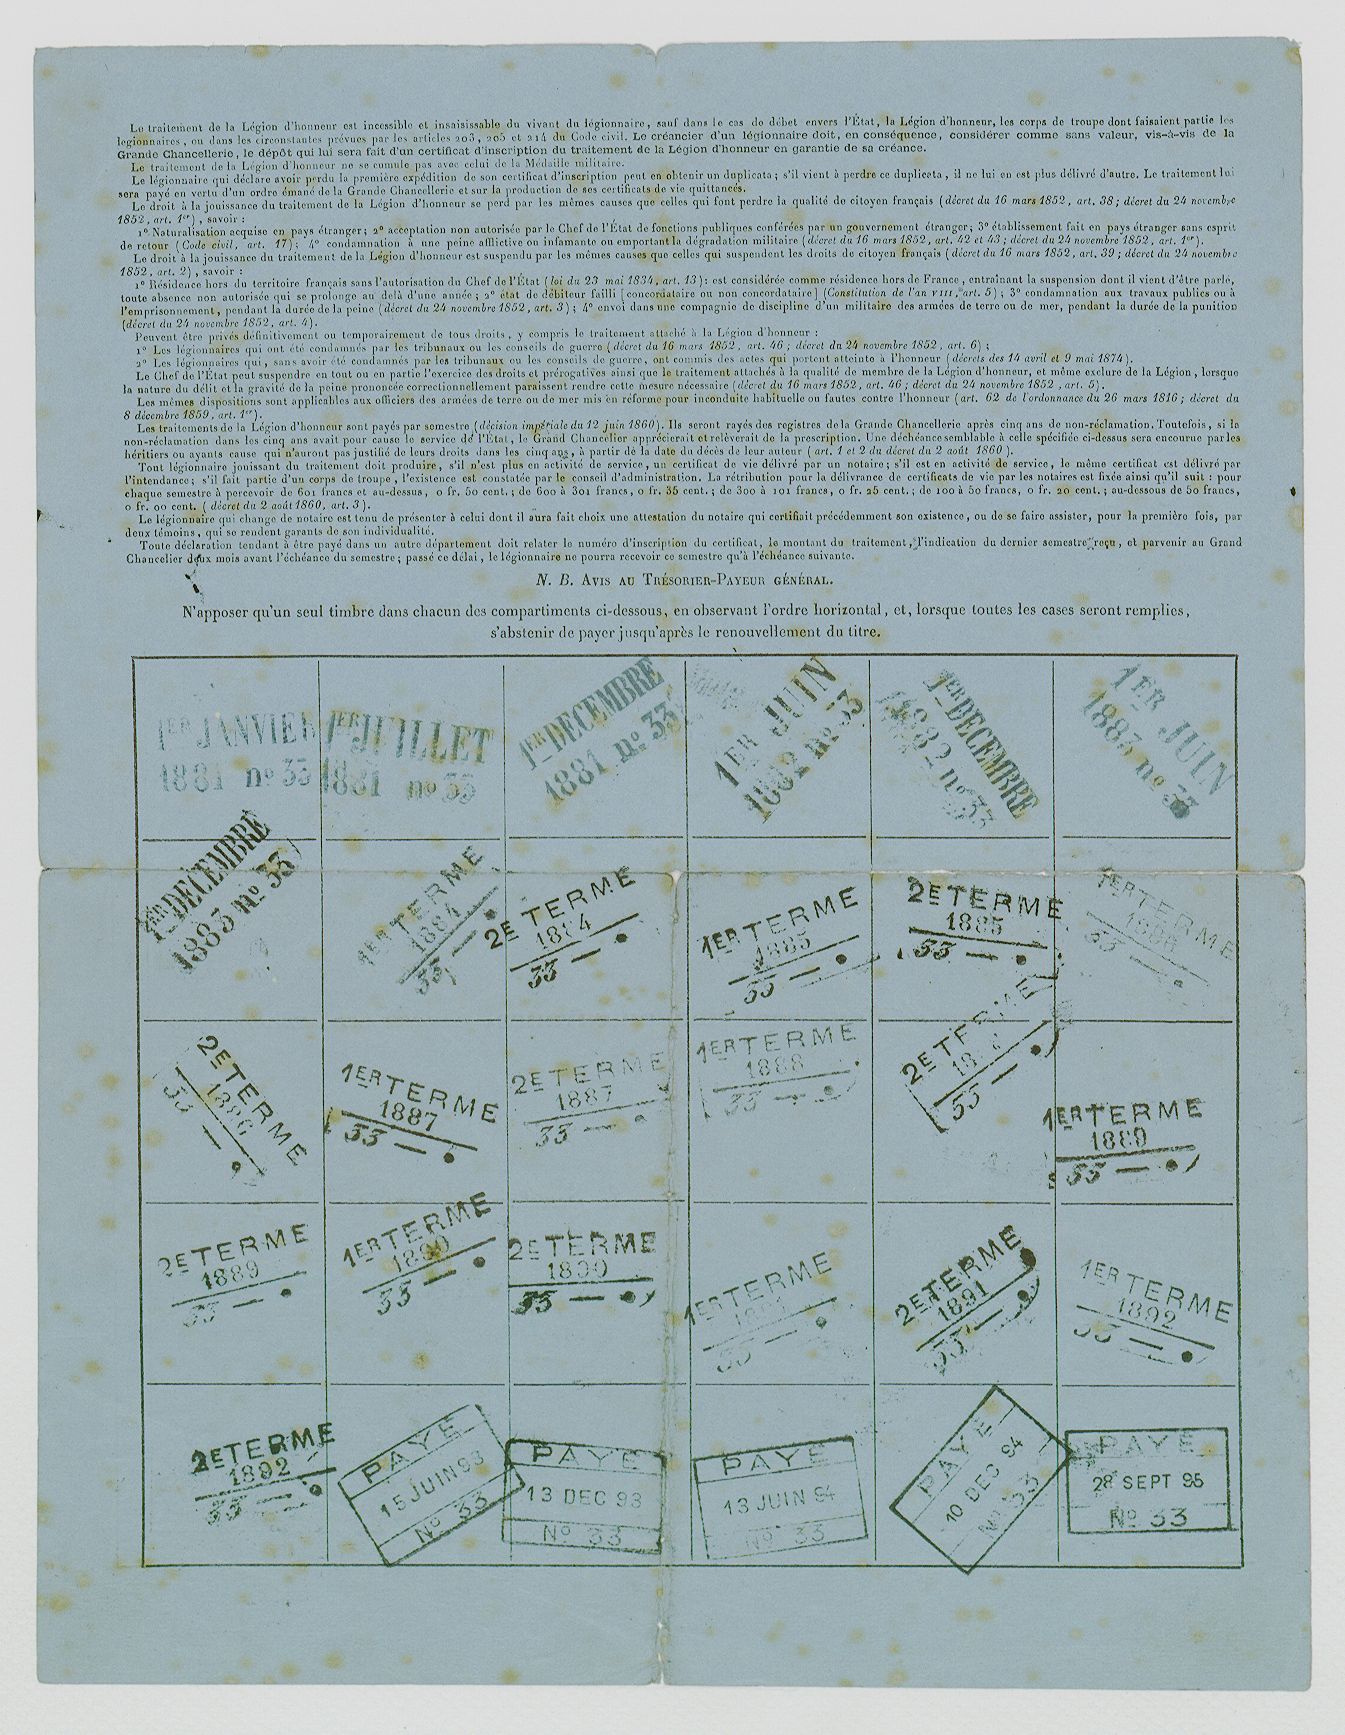 Le traitement de la Légion d'honneur est incessible et insaisissable du vivant du légionnaire, sauf dans le cas de débet envers l'État, la Légion d'honneur, les corps de troupe dont faisaient partie les
légionnaires, ou dans les circonstances prévues par les articles 203, 205 et 214 du Code civil. Le créancier d'un légionnaire doit, en conséquence, considérer comme sans valeur, vis-à-vis de la
Grande Chancellerie, le dépôt qui lui sera fait d'un certificat d'inscription du traitement de la Légion d'honneur en garantie de sa créance.
Le traitement de la Légion d'honneur ne se cumule pas avec celui de la Médaille militaire.
Le légionnaire qui déclare avoir perdu la première expédition de son certificat d'inscription peut en obtenir un duplicata; s'il vient à perdre ce duplicata, il ne lui en est plus délivré d'autre. Le traitement lui
sera payé en vertu d'un ordre émané de la Grande Chancellerie et sur la production de ses certificats de vie quittancés.
Le droit à la jouissance du traitement de la Légion d'honneur se perd par les mêmes causes que celles qui font perdre la qualité de citoyen français (décret du 16 mars 1852, art. 38; décret du 24 novembre
1852, art. 1er), savoir :
1° Naturalisation acquise en pays étranger; 2° acceptation non autorisée par le Chef de l'État de fonctions publiques conférées par un gouvernement étranger; 3° établissement fait en pays étranger sans esprit
de retour (Code civil, art. 17); 4° condamnation à une peine afflictive ou infamante ou emportant la dégradation militaire (décret du 16 mars 1852, art. 42 et 43; décret du 24 novembre 1852, art. 1er).
Le droit à la jouissance du traitement de la Légion d'honneur est suspendu par les mêmes causes que celles qui suspendent les droits de citoyen français (décret du 16 mars 1852, art. 39; décret du 24 novembre
1852, art. 2), savoir :
1° Résidence hors du territoire français sans l'autorisation du Chef de l'État (loi du 23 mai 1834, art. 13): est considérée comme résidence hors de France, entraînant la suspension dont il vient d'être parlé,
toute absence non autorisée qui se prolonge au delà d'une année; 2° état de débiteur failli [concordataire ou non concordataire] (Constitution de l'an VIII, art. 5); 3° condamnation aux travaux publics ou à
l'emprisonnement, pendant la durée de la peine (décret du 24 novembre 1852, art. 3); 4° envoi dans une compagnie de discipline d'un militaire des armées de terre ou de mer, pendant la durée de la punition
(décret du 24 novembre 1852, art. 4).
Peuvent être privés définitivement ou temporairement de tous droits, y compris le traitement attaché à la Légion d'honneur :
1° Les légionnaires qui ont été condamnés par les tribunaux ou les conseils de guerre (décret du 16 mars 1852, art. 46; décret du 24 novembre 1852, art. 6);
2° Les légionnaires qui, sans avoir été condamnés par les tribunaux ou les conseils de guerre, ont commis des actes qui portent atteinte à l'honneur (décrets des 14 avril et 9 mai 1874).
Le Chef de l'État peut suspendre en tout ou en partie l'exercice des droits et prérogatives ainsi que le traitement attachés à la qualité de membre de la Légion d'honneur, et même exclure de la Légion, lorsque
la nature du délit et la gravité de la peine prononcée correctionnellement paraissent rendre cette mesure nécessaire (décret du 16 mars 1852, art. 46; décret du 24 novembre 1852, art. 5).
Les mêmes dispositions sont applicables aux officiers des armées de terre ou de mer mis en réforme pour inconduite habituelle ou fautes contre l'honneur (art. 62 de l'ordonnance du 26 mars 1816; décret du
8 décembre 1859, art. 1er).
Les traitements de la Légion d'honneur sont payés par semestre (décision impériale du 12 juin 1860). Ils seront rayés des registres de la Grande Chancellerie après cinq ans de non-réclamation. Toutefois, si la
non-réclamation dans les cinq ans avait pour cause le service de l'État, le Grand Chancelier apprécierait et relèverait de la prescription. Une déchéance semblable à celle spécifiée ci-dessus sera encourue par les
héritiers ou ayants cause qui n'auront pas justifié de leurs droits dans les cinq ans, à partir de la date du décès de leur auteur (art. 1 et 2 du décret du 2 août 1860).
Tout légionnaire jouissant du traitement doit produire, s'il n'est plus en activité de service, un certificat de vie délivré par un notaire; s'il est en activité de service, le même certificat est délivré par
l'intendance; s'il fait partie d'un corps de troupe, l'existence est constatée par le conseil d'administration. La rétribution pour la délivrance de certificats de vie par les notaires est fixée ainsi qu'il suit : pour
chaque semestre à percevoir de 601 francs et au-dessus, 0 fr. 50 cent.; de 600 à 301 francs, 0 fr. 35 cent.; de 300 à 101 francs, 0 fr. 25 cent.; de 100 à 50 francs, 0 fr. 20 cent.; au-dessous de 50 francs,
0 fr. 00 cent. (décret du 2 août 1860, art. 3).
Le légionnaire qui change de notaire est tenu de présenter à celui dont il aura fait choix une attestation du notaire qui certifiait précédemment son existence, ou de se faire assister, pour la première fois, par
deux témoins, qui se rendent garants de son individualité.
Toute déclaration tendant à être payé dans un autre département doit relater le numéro d'inscription du certificat, le montant du traitement, l'indication du dernier semestre reçu, et parvenir au Grand
Chancelier deux mois avant l'échéance du semestre; passé ce délai, le légionnaire ne pourra recevoir ce semestre qu'à l'échéance suivante.
N. B. Avis au Trésorier-Payeur général.
N'apposer qu'un seul timbre dans chacun des compartiments ci-dessous, en observant l'ordre horizontal, et, lorsque toutes les cases seront remplies,
s'abstenir de payer jusqu'après le renouvellement du titre.
1ER JANVIER
1881 no 33
1ER JUILLET
1881 no 33
1ER DECEMBRE
1881 no 33
1ER JUIN
1882 no 33
1ER DECEMBRE
1882 no 33
1ER JUIN
1883 no 33
1ER DECEMBRE
1883 no 33
1ER TERME
1884
33 —
2E TERME
1884
33 —
1ER TERME
1885
33 —
2E TERME
1885
33 —
1ER TERME
1886
33 —
2E TERME
1886
33 —
1ER TERME
1887
33 —
2E TERME
1887
33 —
1ER TERME
1888
33 —
2E TERME
33 —
1ER TERME
1889
33 —
2E TERME
1889
33 —
1ER TERME
1890
33 —
2E TERME
1890
33 —
1ER TERME
1891
33 —
2E TERME
1891
33 —
1ER TERME
1892
33 —
2E TERME
1892
33 —
PAYÉ
15 JUIN 93
No 33
PAYÉ
13 DEC 93
No 33
PAYÉ
13 JUIN 94
No 33
PAYÉ
10 DEC 94
No 33
PAYÉ
28 SEPT 95
No 33